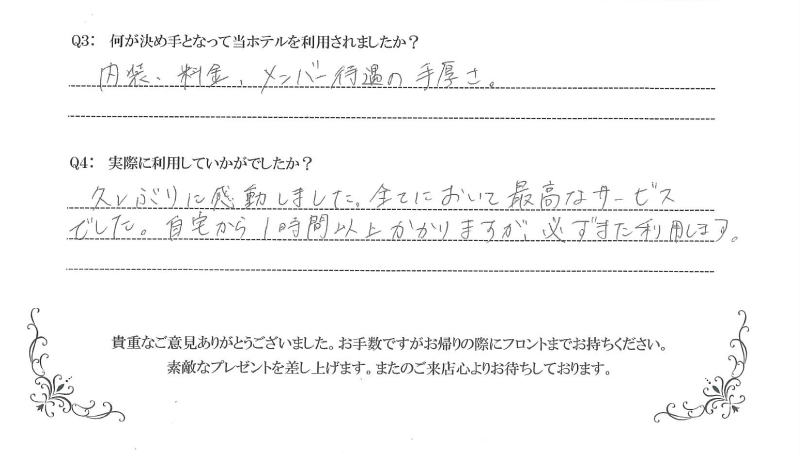 Q3: 何が決め手となって当ホテルを利用されましたか？
内装、料金、メンバー待遇の手厚さ。
Q4: 実際に利用していかがでしたか？
久しぶりに感動しました。全てにおいて最高なサービス
でした。自宅から1時間以上かかりますが、必ずまた利用します。
貴重なご意見ありがとうございました。お手数ですがお帰りの際にフロントまでお持ちください。
素敵なプレゼントを差し上げます。またのご来店心よりお待ちしております。